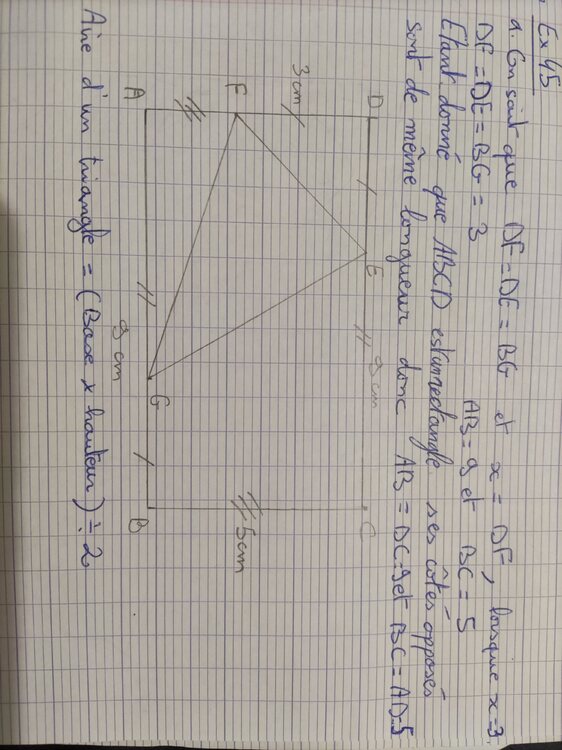 Ex 45
a. On sait que DF = DE = BG et x = DF, lorsque x=3
DF = DE = BG = 3 AB = 9 et BC = 5
Etant donné que ABCD est un rectangle ses côtés opposés
sont de même longueur donc AB = DC = 9 et BC = AD = 5
D E 9 cm C
3cm
F 5cm
A G B
9 cm
Aire d'un triangle = (Base x hauteur) ÷ 2